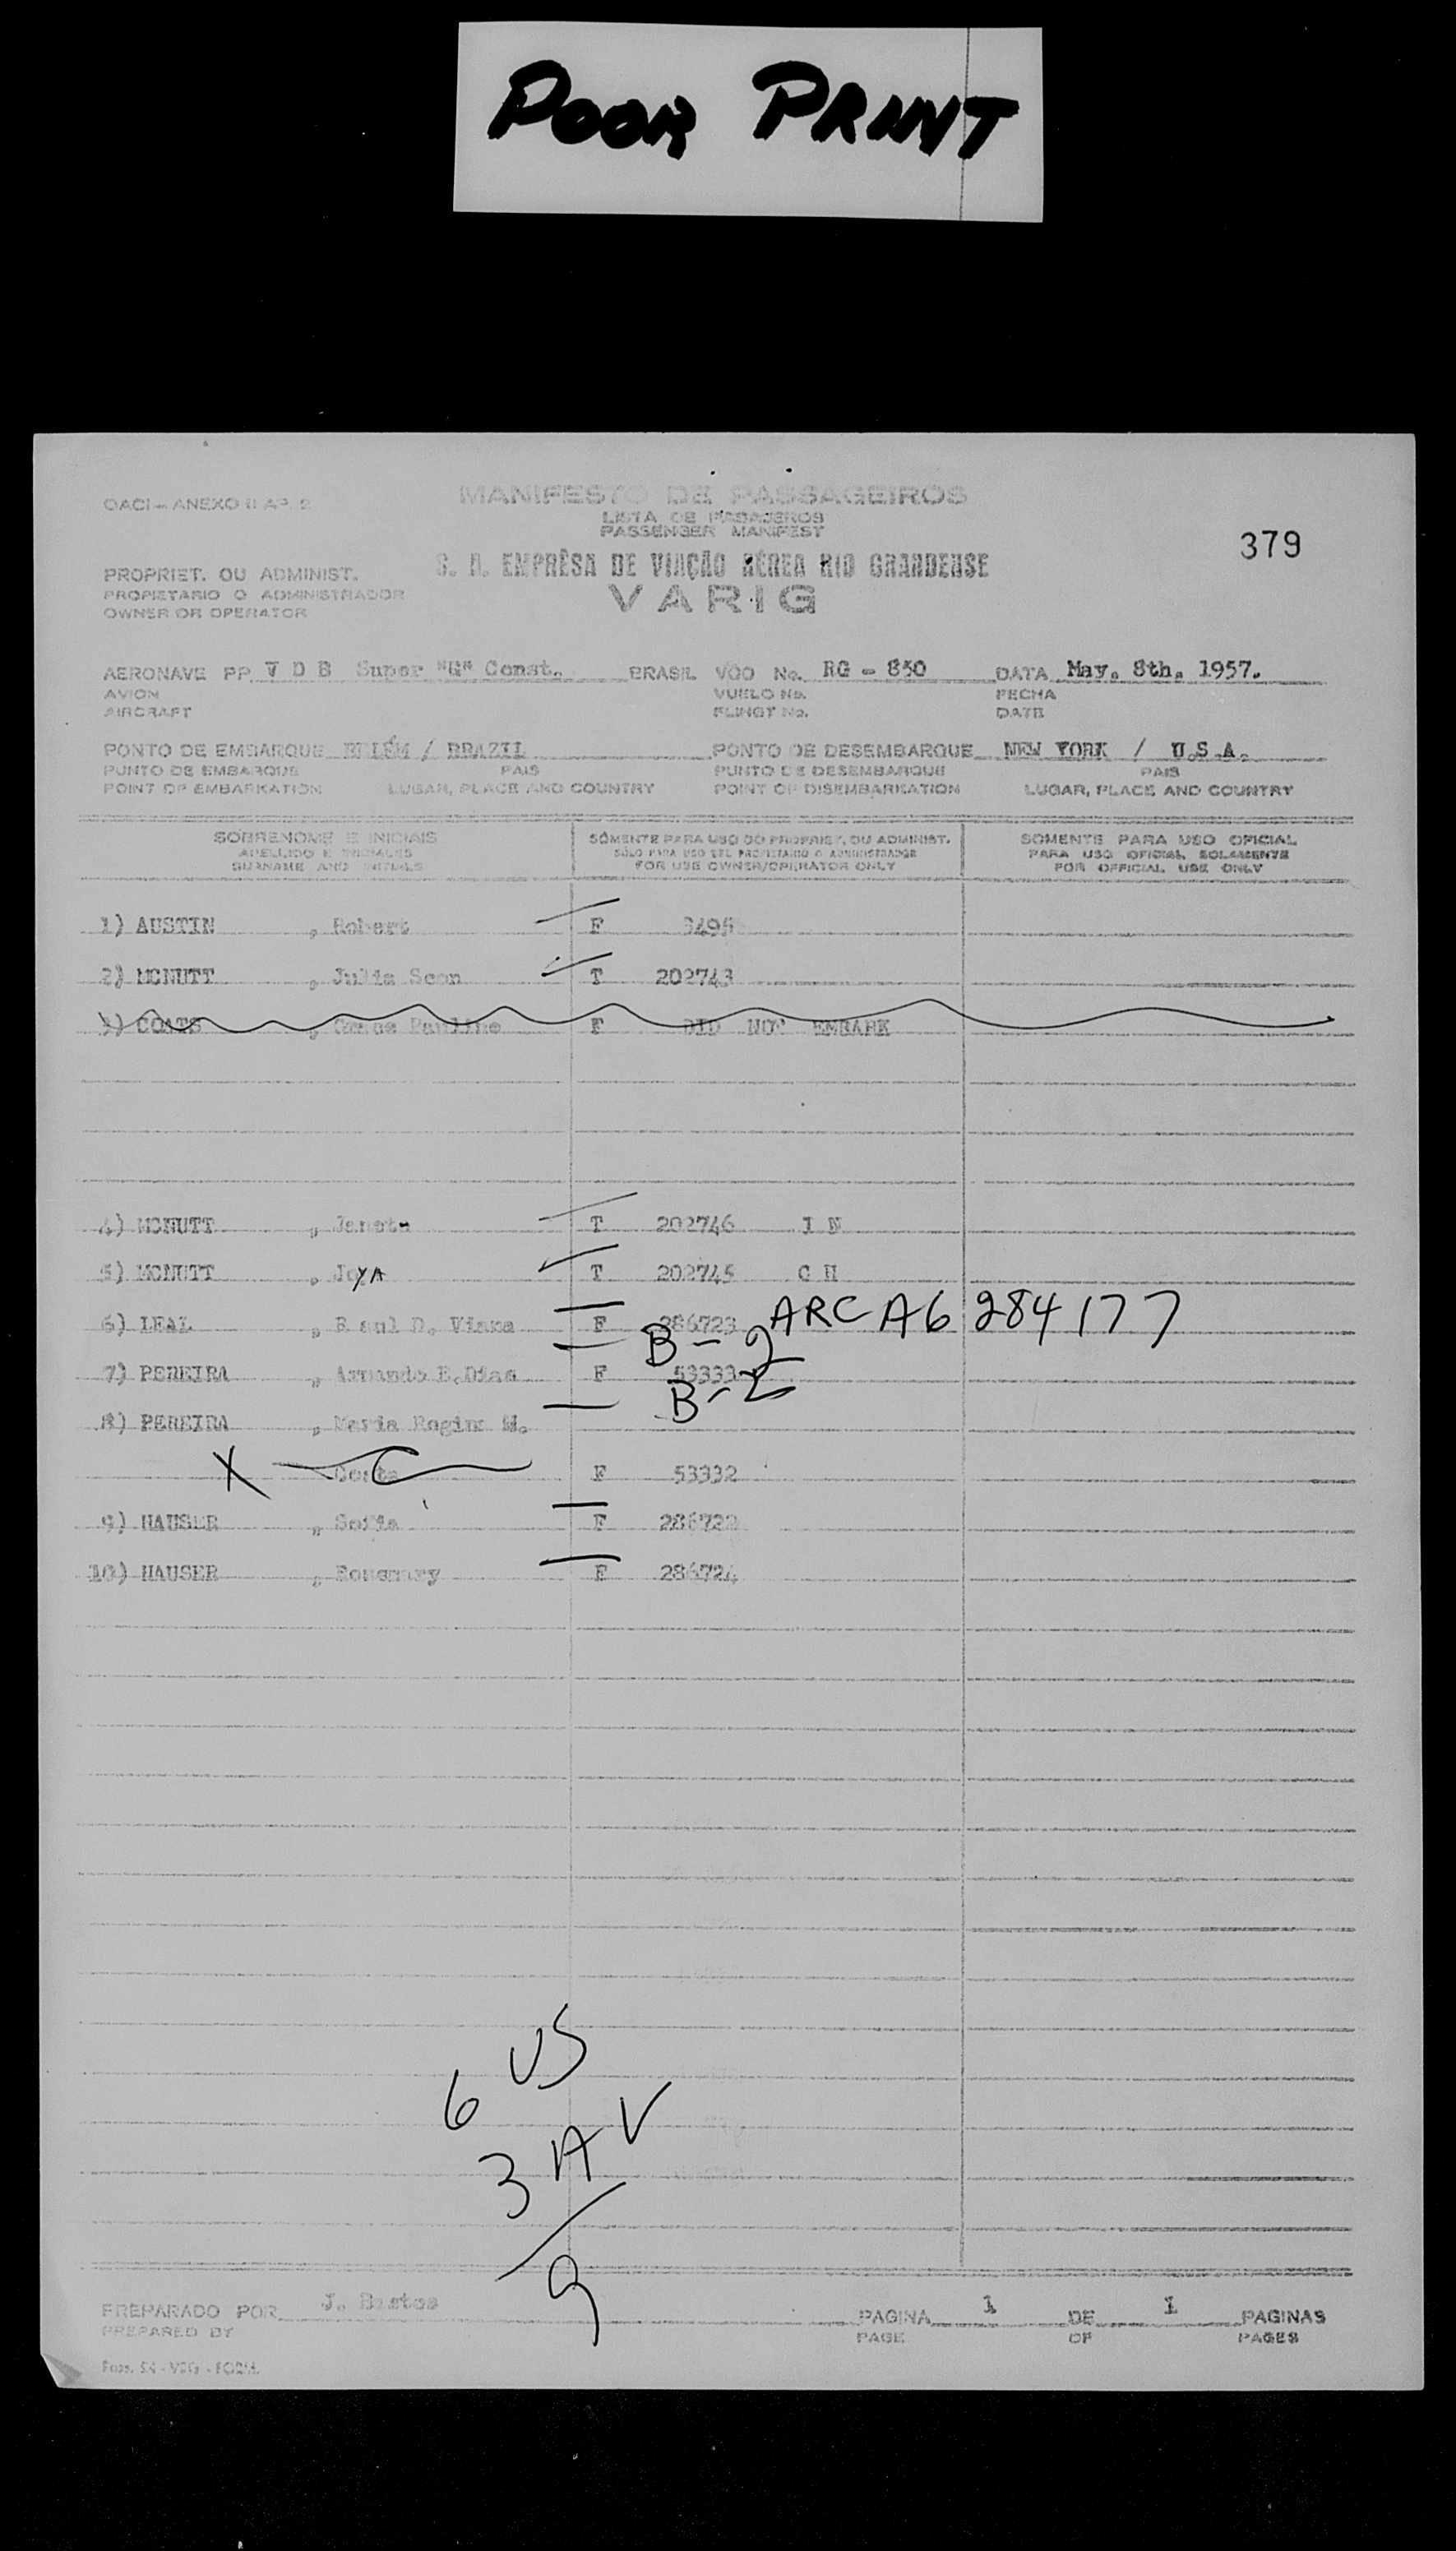 POOR PRINT
OACI - ANEXO 9 AP. 2
MANIFESTO DE PASSAGEIROS
LISTA DE PASAJEROS
PASSENGER MANIFEST
379
S. A. EMPRÊSA DE VIAÇÃO AÉREA RIO GRANDENSE
PROPRIET. OU ADMINIST.
PROPIETARIO O ADMINISTRADOR
VARIG
OWNER OR OPERATOR
AERONAVE PP V D B Super "G" Const. BRASIL VÔO No. RG - 850 DATA May. 8th. 1957.
AVION VUELO No. FECHA
AIRCRAFT FLINGT No. DATE
PONTO DE EMBARQUE BELÉM / BRAZIL PONTO DE DESEMBARQUE NEW YORK / U.S.A.
PUNTO DE EMBARQUE PAIS PUNTO DE DESEMBARQUE PAIS
POINT OF EMBARKATION LUGAR, PLACE AND COUNTRY POINT OF DISEMBARKATION LUGAR, PLACE AND COUNTRY
SOBRENOME E INICIAIS SÓMENTE PARA USO DO PROPRIET. OU ADMINIST. SOMENTE PARA USO OFICIAL
APELLIDO E INICIALES SÓLO PARA USO DEL PROPIETARIO O ADMINISTRADOR PARA USO OFICIAL SOLAMENTE
SURNAME AND INITIALS FOR USE OWNER/OPERATOR ONLY FOR OFFICIAL USE ONLY
1) AUSTIN , Robert F 3495
2) MCNUTT , Julia Scon T 202743
3) COATS , Pauline F DID NOT EMBARK
4) MCNUTT , Janet T 202746 I N
5) MCNUTT , JoYA T 202745 C H
6) LEAL , Raul D. Viana F 286723 ARC A6 284177
B-2
7) PEREIRA , Armando E. Dias F 53333
B-2
8) PEREIRA , Maria Regina M.
X Costa F 53332
9) HAUSER , Sofia F 286722
10) HAUSER , Rosemary F 286724
6 US
3 A V
9
PREPARADO POR J. Bastos PAGINA 1 DE 1 PAGINAS
PREPARED BY PAGE OF PAGES